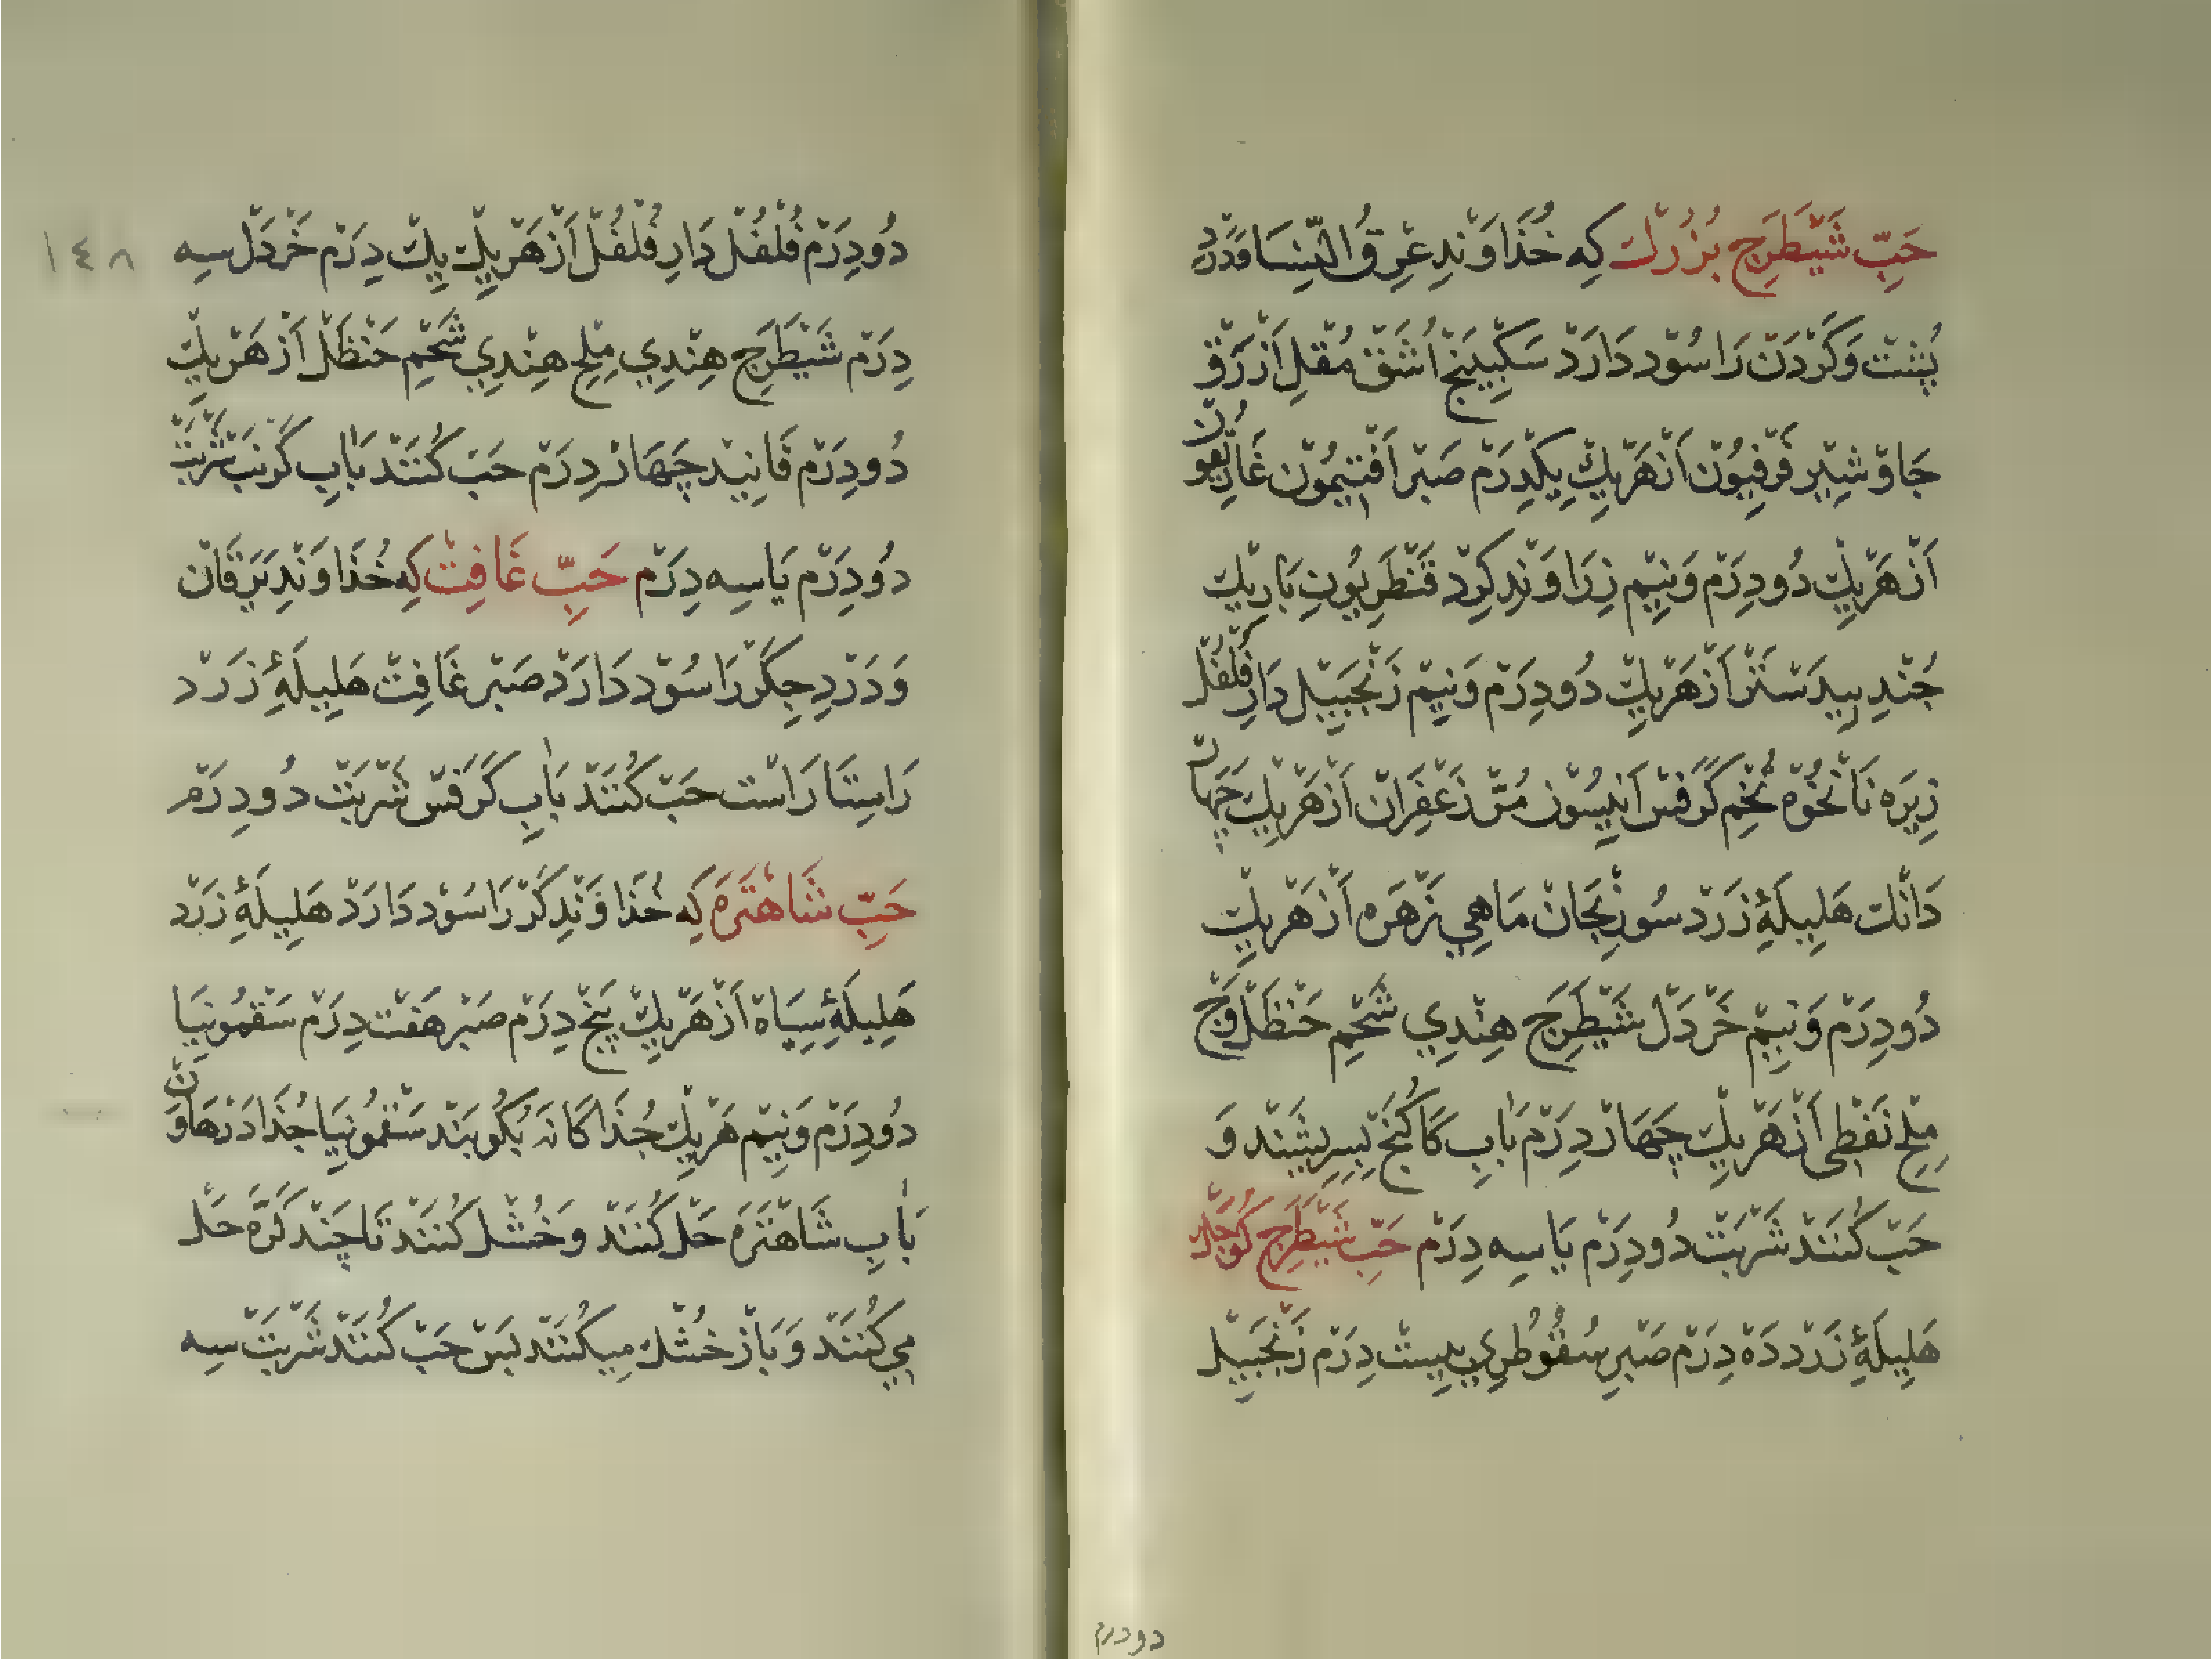 حَبِّ شَيْطَرَجِ بُزُرْك كِه خُذَاوَنْدِ عِرْقُ النِّسَا وَدَرْدِ
پُشْت وَكَرْدَن رَا سُوْد دَارَدْ سَكْبِينَجْ اُشَقْ مُقْلِ اَزْرَقْ
جَاوْشِيْر فَرْفِيُوْن اَزْهَرْيِكْ يِكْدِرَمْ صَبْر اَفْتِيمُوْن غَارِيْقُوْن
اَزْهَرْيِكْ دُودِرَمْ وَنِيْم زِرَاوَنْدِ كِرْد قَنْطَرِيُونِ بَارِيْك
جُنْدِ بِيدَسْتَرْ اَزْهَرْيِكْ دُودِرَمْ وَنِيْم زَنْجَبِيْل دَارِفُلْفُلْ
زِيْرَه نَانْخُوْه تُخْمِ كَرَفْس اَنِيسُوْن مُرّ زَعْفِرَانْ اَزْهَرْيِكْ چَهَارْ
دَانْك هَلِيلَهِٔ زَرْد سُورِنْجَانْ مَاهِي زَهْرَه اَزْهَرْيِكْ
دُودِرَمْ وَنِيْم خَرْدَلْ شَيْطَرَجِ هِنْدِي شَحْمِ حَنْظَلْ وَجْ
مِلْحِ نَفْطِى اَزْهَرْيِكْ چَهَارْدِرَمْ بَآبِ كَاكَنْج بِسِرِيشَنْد وَ
حَبّ كُنَنَدْ شَرْبَتْ دُودِرَمْ يَا سِه دِرَمْ حَبِّ شَيْطَرَجِ كُوجَكْ
هَلِيلَهِٔ زَرْد دَهْ دِرَمْ صَبْرِ سُقُوْطُرِي بِيسْت دِرَمْ زَنْجَبِيْل
دودرم
١٤٨
دُودِرَمْ فُلْفُلْ دَارِفُلْفُلْ اَزْهَرْيِكْ يِكْ دِرَمْ خَرْدَلْ سِه
دِرَمْ شَيْطَرَجِ هِنْدِي مِلْحِ هِنْدِي شَحْمِ حَنْظَلْ اَزْهَرْيِكْ
دُودِرَمْ فَانِيْد چَهَارْدِرَمْ حَبّ كُنَنَدْ بَآبِ كَرَنْب شَرْبَتْ
دُودِرَمْ يَا سِه دِرَمْ حَبِّ غَافِتْ كِه خُذَاوَنْدِ يَرَقَانْ
وَدَرْدِ جِكَرْ رَا سُوْد دَارَدْ صَبْر غَافِتْ هَلِيلَهِٔ زَرْد
رَاسْتَا رَاسْت حَبّ كُنَنَدْ بَآبِ كَرَفْس شَرْبَتْ دُودِرَمْ
حَبِّ شَاهْتَرَه كِه خُذَاوَنْدِ كَرْ رَا سُوْد دَارَدْ هَلِيلَهِٔ زَرْد
هَلِيلَهِٔ سِيَاهْ اَزْهَرْيِكْ پَنْج دِرَمْ صَبْر هَفْت دِرَمْ سَقْمُونِيَا
دُودِرَمْ وَنِيْم هَرْيِكْ جُذَاكَانَه بُكُوبَنْد سَقْمُونِيَا جُذَا دَرْهَاوَنْ
بَآبِ شَاهْتَرَه حَلْ كُنَنَدْ وَخُشْك كُنَنَدْ تَا چَنْد كَرَّه حَلْ
مِي كُنَنَدْ وَبَازْ خُشْك مِيكُنَنَدْ پَسْ حَبّ كُنَنَدْ شَرْبَتْ سِه